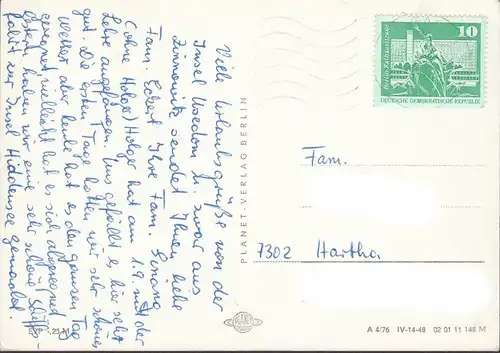 Viele Urlaubsgrüße von der
Insel Usedom u. zwar aus
Zinnowitz sendet Ihnen liebe
Fam. Eckert Ihre Fam.
(ohne Holger) Holger hat am 1.9. mit der
Lehre angefangen. Uns gefällt es hier sehr
gut. Die ersten Tage hatten wir sehr schönes
Wetter aber heute hat es den ganzen Tag
geregnet vielleicht hat es sich abgeregnet
Gestern haben wir eine sehr schöne Schiffs-
fahrt zur Insel Hiddensee gemacht.
EVP -,25 M
PLANET-VERLAG BERLIN
PLANET
10
Berlin, Rathausstrasse
DEUTSCHE DEMOKRATISCHE REPUBLIK
Fam.
7302 Hartha
A 4/76 IV-14-48 02 01 11 148 M